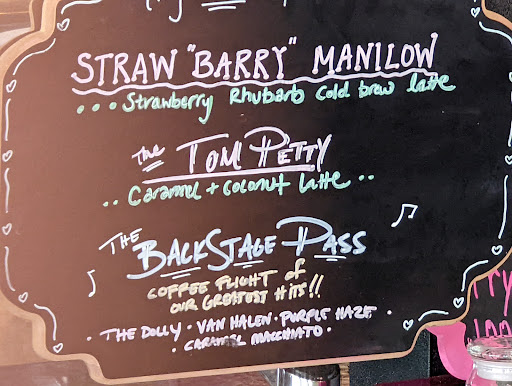 STRAW "BARRY" MANILOW
... Strawberry Rhubarb Cold brew latte
The TOM PETTY
.. Caramel + coconut latte ..
THE BACKSTAGE PASS
COFFEE FLIGHT of
OUR GREATEST HITS!!
• THE DOLLY • VAN HALEN • PURPLE HAZE •
• CARAMEL MACCHIATO •